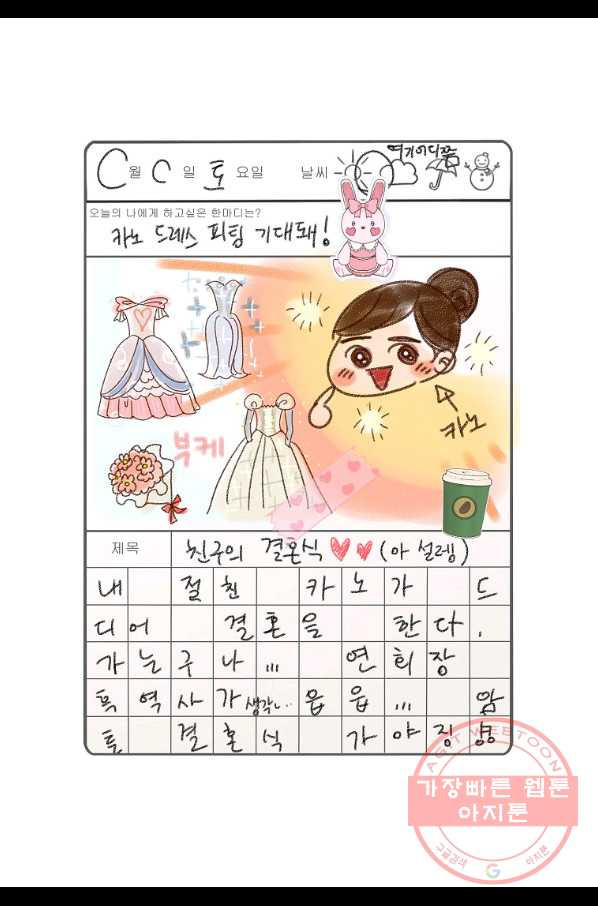 여기어디쯤
C월 C일 토요일 날씨
오늘의 나에게 하고싶은 한마디는?
카노 드레스 피팅 기대돼!
카노
부케
제목 친구의 결혼식 ♥♥ (아 설렘)
내 절친 카노가 드
디어 결혼을 한다.
가는구나... 연회장
흑역사가 생각나.. 읍읍... 암
튼 결혼식 가야징
AGIT WEBTOON
가장빠른 웹툰
아지툰
구글검색 G 아지툰